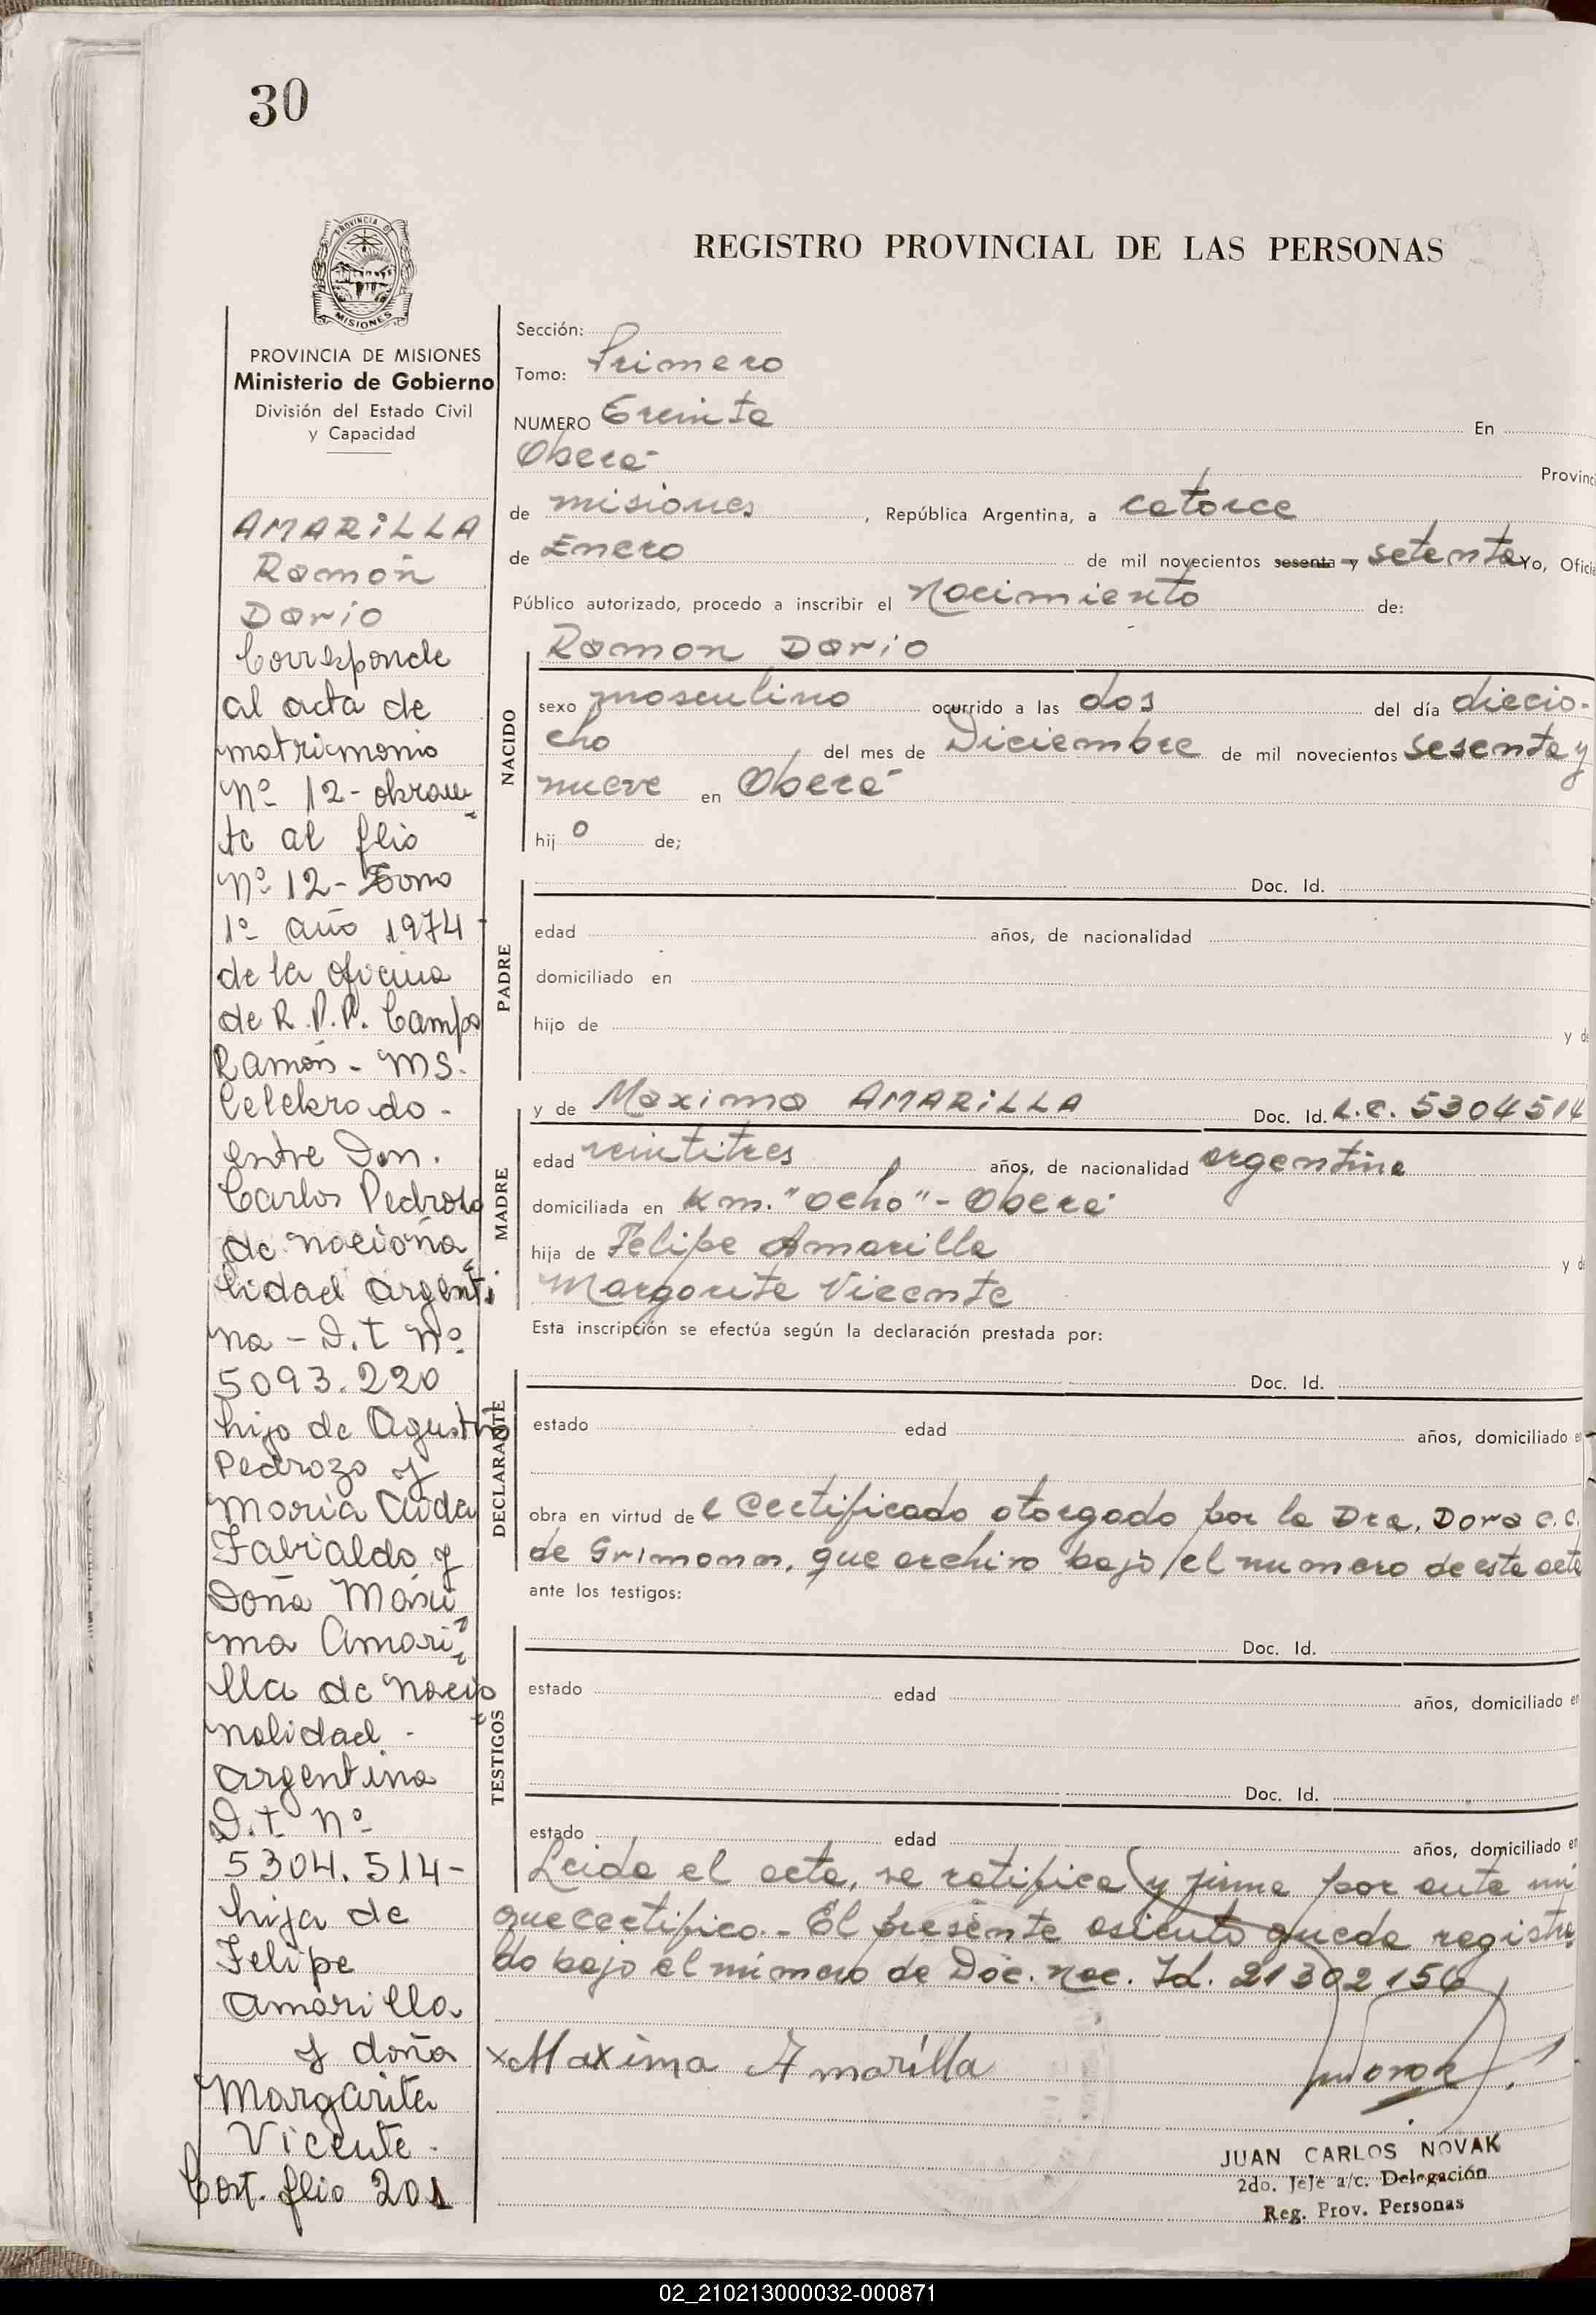 30
PROVINCIA DE MISIONES
REGISTRO PROVINCIAL DE LAS PERSONAS
PROVINCIA DE MISIONES
Ministerio de Gobierno
División del Estado Civil
y Capacidad
AMARILLA
Ramón
Dario
Corresponde
al acta de
matrimonio
Nº 12- obran
te al flio
Nº 12- Tomo
1º año 1974
de la oficina
de R.P.P. Campo
Ramón - MS.
Celebrado -
entre Don.
Carlos Pedrozo
de naciona
lidad argenti
na - D.I Nº
5093.220
hijo de Agustin
Pedrozo y
Maria
y
Doña Maxi
ma Amari
lla de nacio
nalidad -
argentina
D.I Nº
5304.514-
hija de
Felipe
Amarilla
y doña
Margarita
Vicente -
Cort. flio 201
Sección:
Tomo: Primero
NUMERO Treinta En
Oberá Provinci
de misiones , República Argentina, a catorce
de Enero de mil novecientos sesenta y setenta Yo, Oficia
Público autorizado, procedo a inscribir el Nacimiento de:
Ramon Dario
NACIDO
sexo masculino ocurrido a las dos del día diecio-
cho del mes de Diciembre de mil novecientos sesenta y
nueve en Oberá
hij o de;
PADRE
Doc. Id.
edad años, de nacionalidad
domiciliado en
hijo de y de
MADRE
y de Maxima AMARILLA Doc. Id. L.C. 5304514
edad veintitres años, de nacionalidad argentina
domiciliada en Km. "ocho" - Oberá
hija de Felipe Amarilla y de
Margarita Vicente
Esta inscripción se efectúa según la declaración prestada por:
DECLARANTE
Doc. Id.
estado edad años, domiciliado en
obra en virtud de l Certificado otorgado por la Dra. Dora C.C.
de Grimonn, que archivo bajo el numero de esta acta
ante los testigos:
TESTIGOS
Doc. Id.
estado edad años, domiciliado en
Doc. Id.
estado edad años, domiciliado en
Leida el acta, se ratifica y firma por ante mi
que certifico.- El presente asiento queda registra
do bajo el número de Doc. Nac. Id. 21302156
x Maxima Amarilla
JUAN CARLOS NOVAK
2do. Jefe a/c. Delegación
Reg. Prov. Personas
02_210213000032-000871